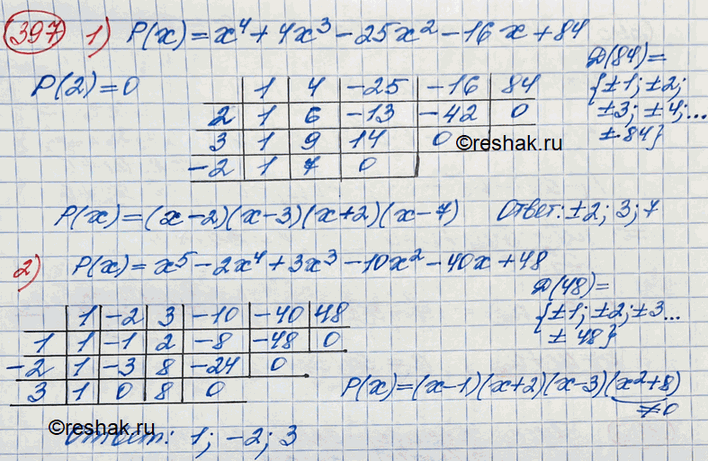 397 1) P(x)=x⁴+4x³-25x²-16x+84
P(2)=0
Д(84)=
{±1; ±2;
±3; ±4;...
±84}
1 4 -25 -16 84
2 1 6 -13 -42 0
3 1 9 14 0
-2 1 7 0
©reshak.ru
P(x)=(x-2)(x-3)(x+2)(x-7) Ответ: ±2; 3; 7
2) P(x)=x⁵-2x⁴+3x³-10x²-40x+48
Д(48)=
{±1; ±2; ±3...
±48}
1 -2 3 -10 -40 48
1 1 -1 2 -8 -48 0
-2 1 -3 8 -24 0
3 1 0 8 0
P(x)=(x-1)(x+2)(x-3)(x²+8)
≠0
Ответ: 1; -2; 3
©reshak.ru